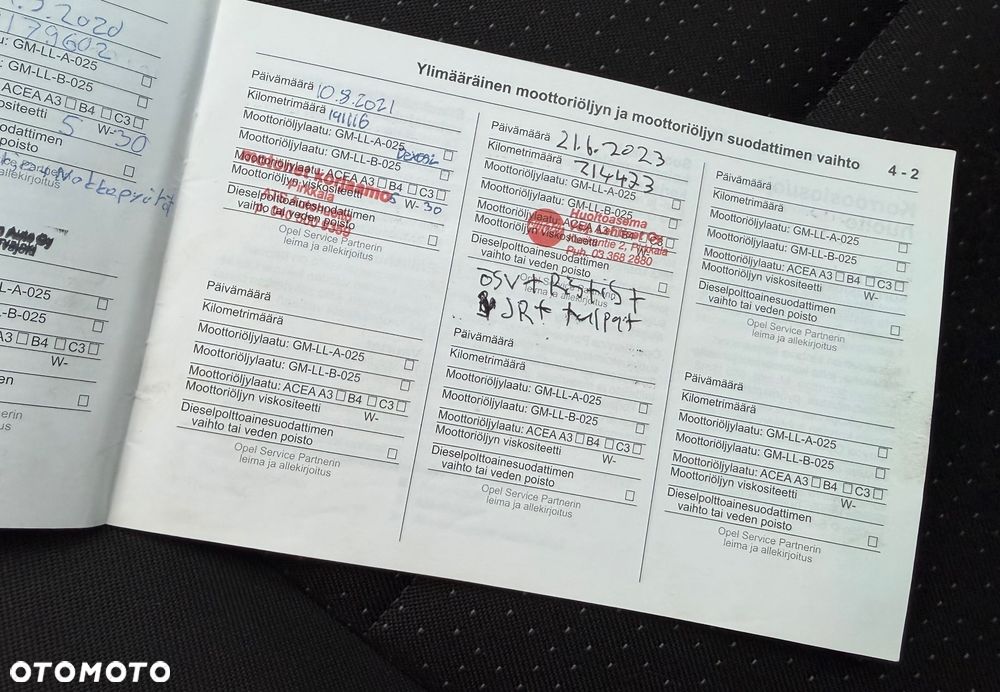 .5.2020
179602
: GM-LL-A-025
: GM-LL-B-025
ACEA A3 B4 C3
5 W-30
suodattimen
poisto
Partnerin
allekirjoitus
Auto Oy
GM-LL-A-025
GM-LL-B-025
A3 B4 C3
W-
Ylimääräinen moottoriöljyn ja moottoriöljyn suodattimen vaihto
4 - 2
Päivämäärä 10.8.2021
Kilometrimäärä 191116
Moottoriöljylaatu: GM-LL-A-025
Moottoriöljylaatu: GM-LL-B-025 Dexos2
Moottoriöljylaatu: ACEA A3 B4 C3
Moottoriöljyn viskositeetti 5 W-30
Dieselpolttoainesuodattimen
vaihto tai veden poisto
Pirkkala
Opel Service Partnerin
leima ja allekirjoitus
Päivämäärä
Kilometrimäärä
Moottoriöljylaatu: GM-LL-A-025
Moottoriöljylaatu: GM-LL-B-025
Moottoriöljylaatu: ACEA A3 B4 C3
Moottoriöljyn viskositeetti W-
Dieselpolttoainesuodattimen
vaihto tai veden poisto
Opel Service Partnerin
leima ja allekirjoitus
Päivämäärä 21.6.2023
Kilometrimäärä 214473
Moottoriöljylaatu: GM-LL-A-025
Moottoriöljylaatu: GM-LL-B-025
Moottoriöljylaatu: ACEA A3 B4 C3
Moottoriöljyn viskositeetti W-
Dieselpolttoainesuodattimen
vaihto tai veden poisto
Huoltoasema
2, Pirkkala
Puh. 03 368 2880
Opel Service Partnerin
leima ja allekirjoitus
JRT tulpat
Päivämäärä
Kilometrimäärä
Moottoriöljylaatu: GM-LL-A-025
Moottoriöljylaatu: GM-LL-B-025
Moottoriöljylaatu: ACEA A3 B4 C3
Moottoriöljyn viskositeetti W-
Dieselpolttoainesuodattimen
vaihto tai veden poisto
Opel Service Partnerin
leima ja allekirjoitus
Päivämäärä
Kilometrimäärä
Moottoriöljylaatu: GM-LL-A-025
Moottoriöljylaatu: GM-LL-B-025
Moottoriöljylaatu: ACEA A3 B4 C3
Moottoriöljyn viskositeetti W-
Dieselpolttoainesuodattimen
vaihto tai veden poisto
Opel Service Partnerin
leima ja allekirjoitus
Päivämäärä
Kilometrimäärä
Moottoriöljylaatu: GM-LL-A-025
Moottoriöljylaatu: GM-LL-B-025
Moottoriöljylaatu: ACEA A3 B4 C3
Moottoriöljyn viskositeetti W-
Dieselpolttoainesuodattimen
vaihto tai veden poisto
Opel Service Partnerin
leima ja allekirjoitus
OTOMOTO